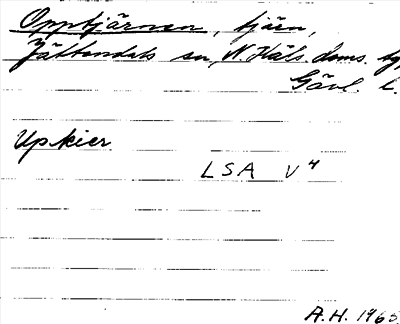 Opptjärnen, tjärn,
Jättendals sn, N. Häls. doms. tg,
Gävl. l.
Upkier
LSA V 4
A.H. 1965